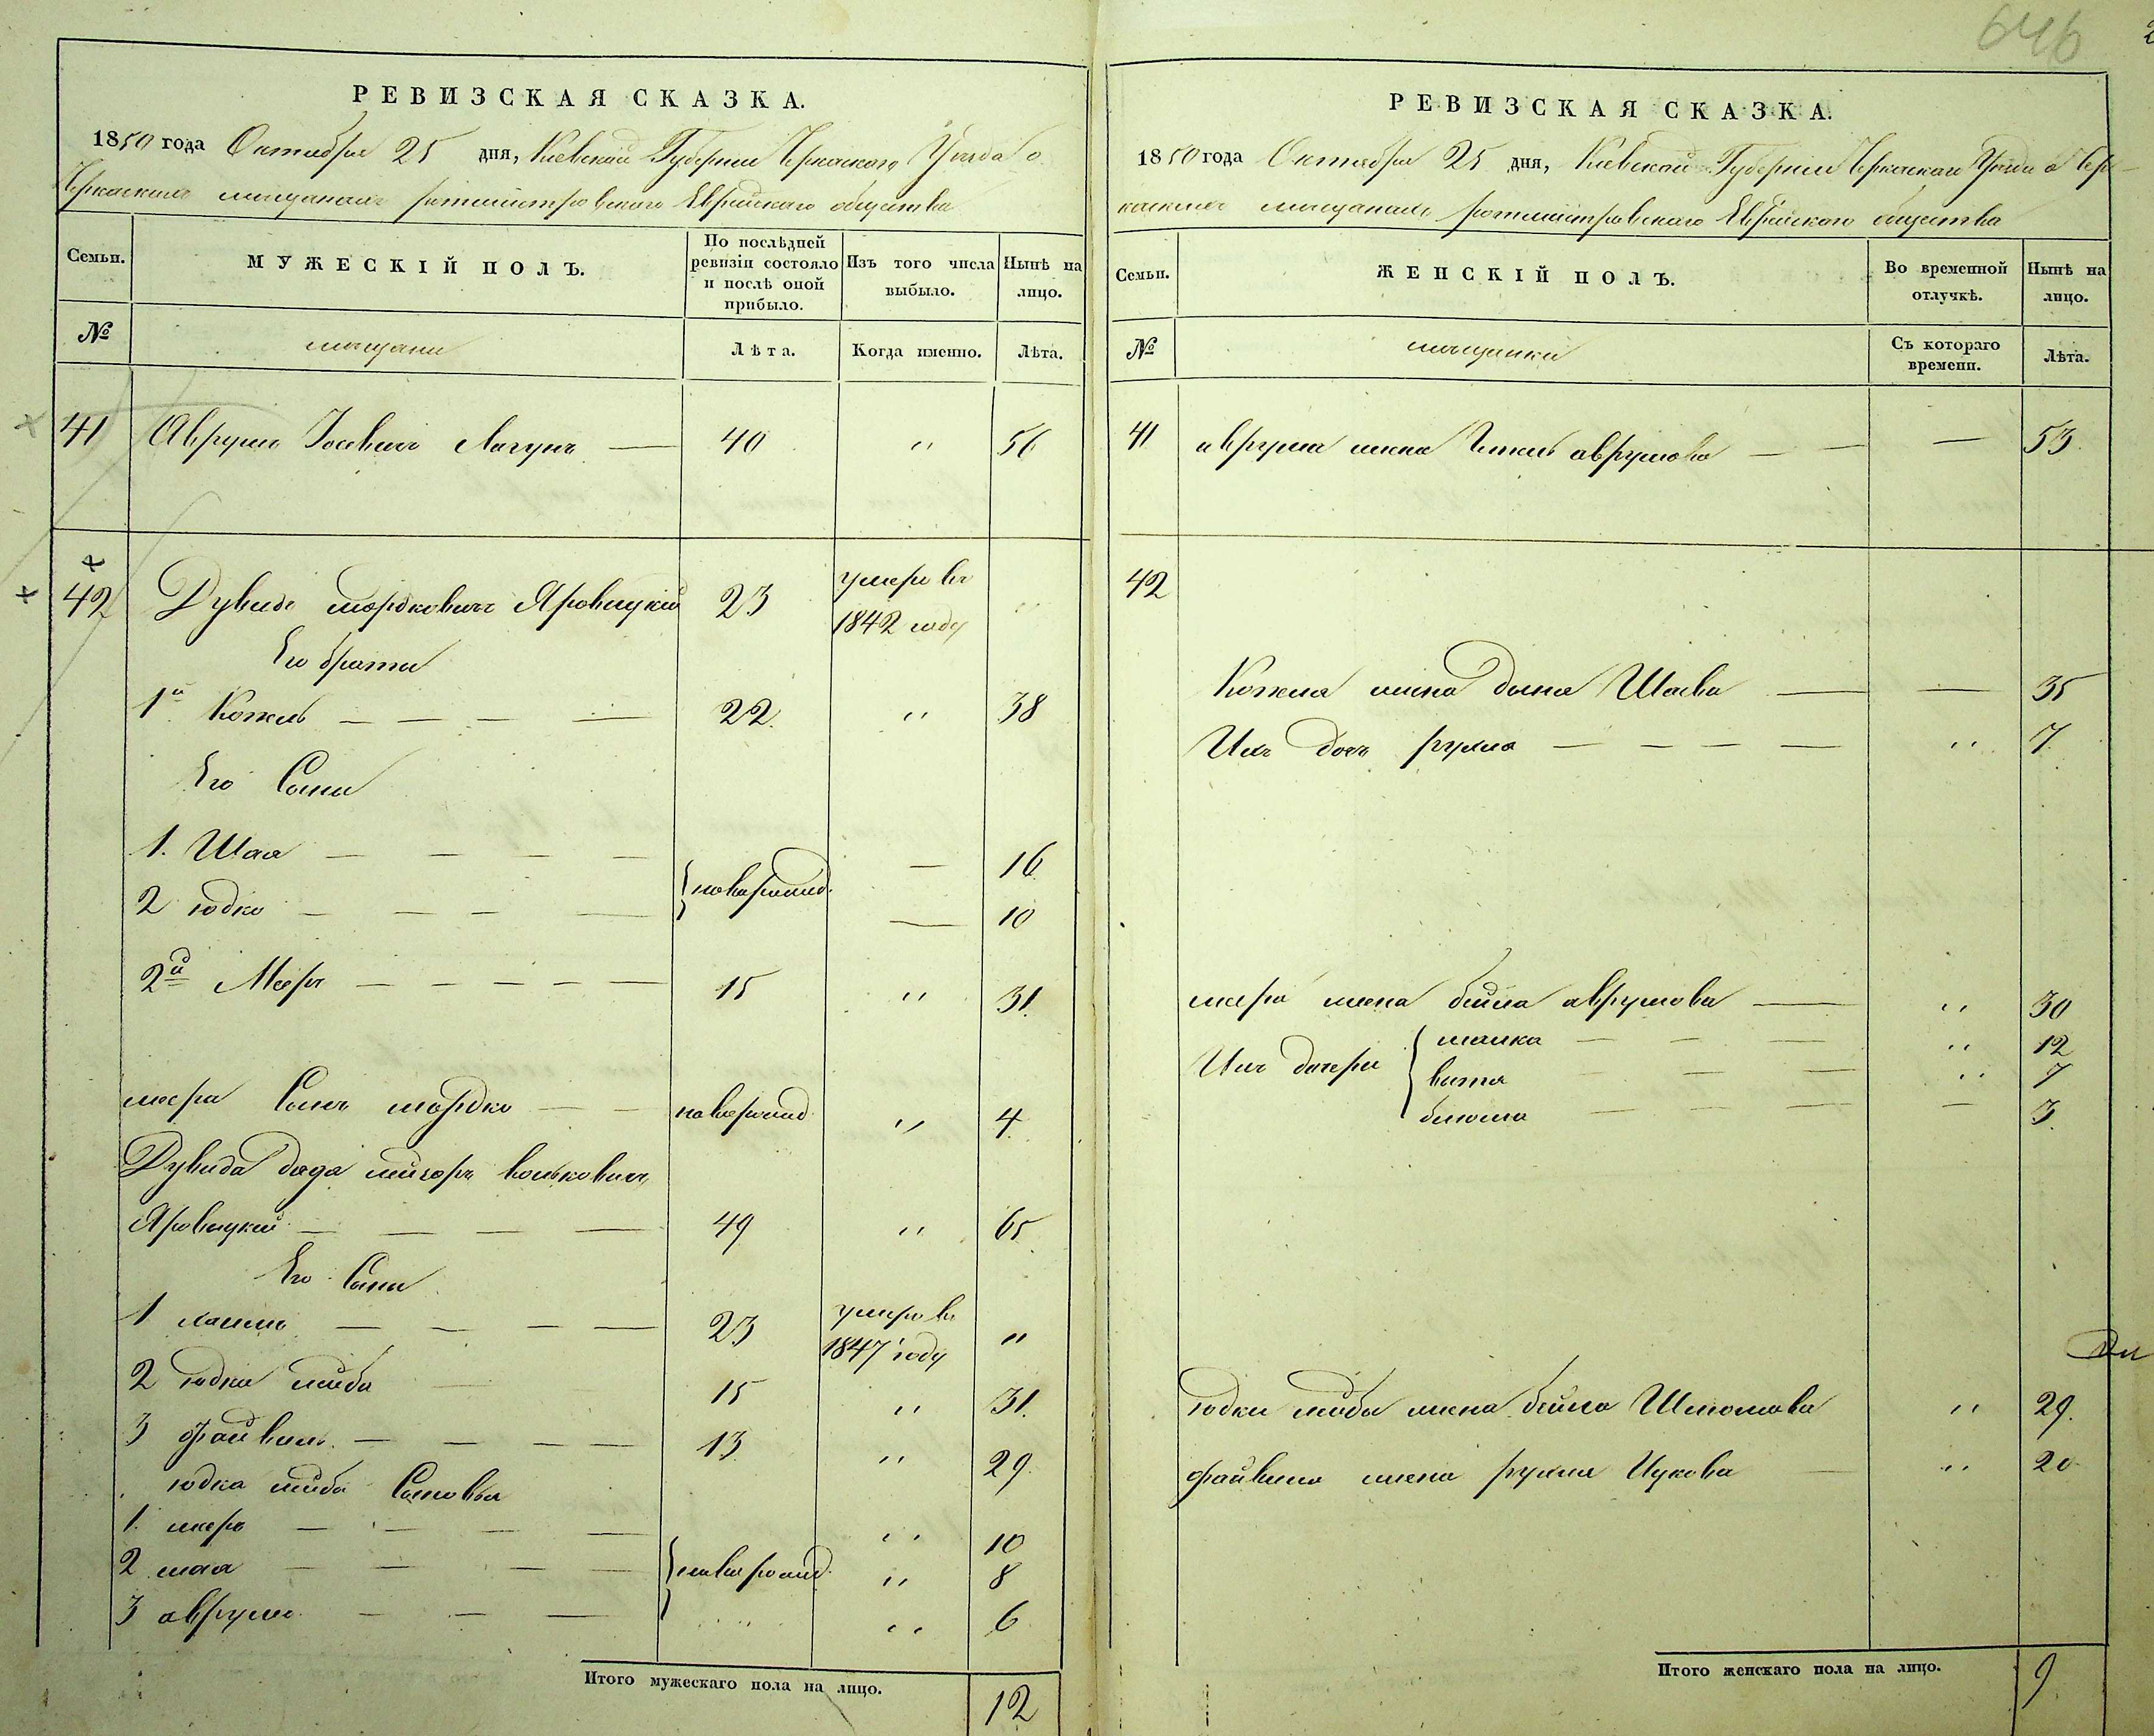 646
РЕВИЗСКАЯ СКАЗКА.
1850 года Октября 25 дня, Киевской Губернии Черкаскаго Уезда о
Черкаскихъ мещанахъ ротмистровскаго Еврейскаго общества
Семьи.
МУЖЕСКІЙ ПОЛЪ.
По послѣдней ревизіи состояло и послѣ оной прибыло.
Изъ того числа выбыло.
Нынѣ на лицо.
№
мещани
Лѣта.
Когда именно.
Лѣта.
41 Аврумъ Иосевичъ Лагунъ — 40 " 56
42 Дувидъ мордковичъ Яровицкий 23 умеръ въ 1842 году "
Его брати
1й Копель — — — — 22. " 38
Его Сыни
1. Шая — — — — новорожд. — 16
2 юдко — — — — — 10
2й Мееръ — — — — — 15 " 31.
меера Сынъ мордко — — новорожд. " 4.
Дувида дядя
Яровицкий — — — — 49 " 65
Его Сыни
1 — — — — 23 умеръ въ 1847 году "
2 юдка лейба — 15 " 31.
3 файвель. — — — — 13. " 29.
юдка лейба Сыновья
1. мееръ — — — — " 10
2 шая — — — — новорожд. " 8
3 аврумъ — — — " 6
Итого мужескаго пола на лицо. 12
РЕВИЗСКАЯ СКАЗКА.
1850 года Октября 25 дня, Киевской Губернии Черкаскаго Уезда о Чер-
каскихъ мещанахъ ротмистровскаго Еврейскаго общества
Семьи.
ЖЕНСКІЙ ПОЛЪ.
Во временной отлучкѣ.
Нынѣ на лицо.
№
мещанки
Съ котораго времени.
Лѣта.
41 аврума жена аврумова — — — 53.
42
Копеля жена Шаева — — 35
Ихъ дочь рухля — — — — " 7.
меера жена бейла аврумова — " 30
Ихъ дочери
— — — " 12
— — — " 7
— — — — 3.
юдки лейбы жена бейла " 29.
файвеля жена рухля Ицкова — " 20
Итого женскаго пола на лицо. 9